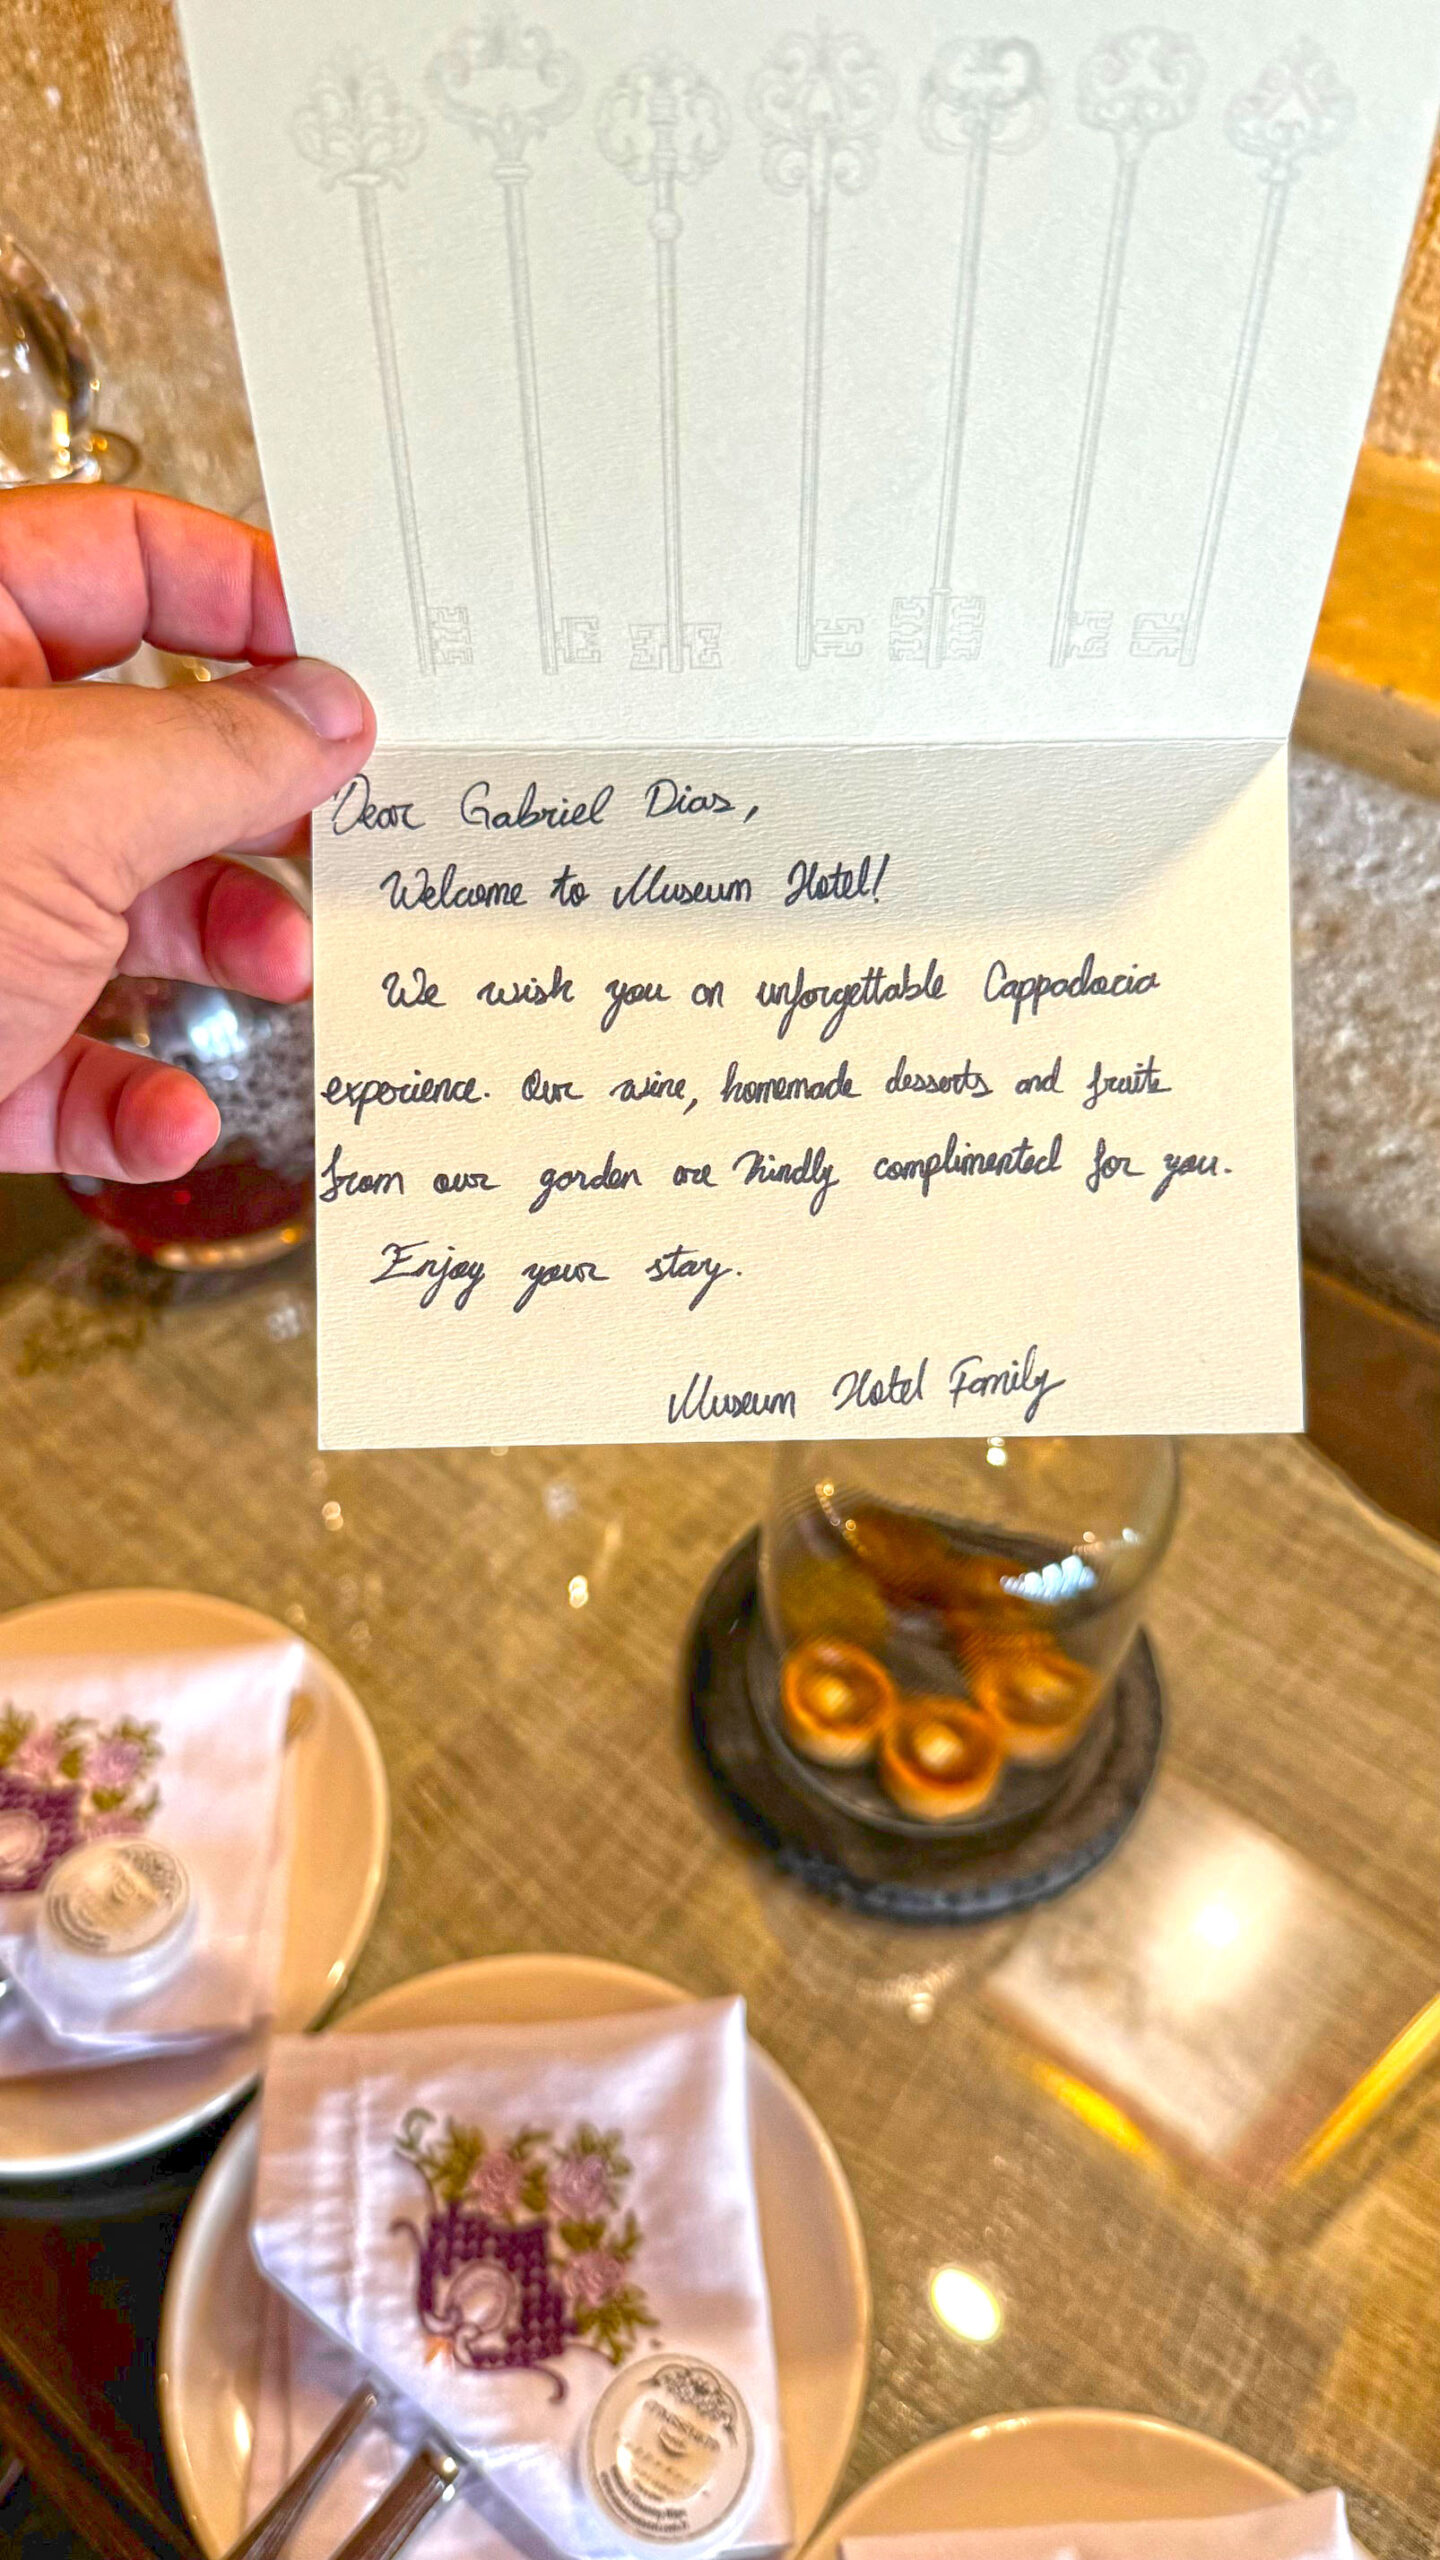 Dear Gabriel Dias,
Welcome to Museum Hotel!
We wish you an unforgettable Cappadocia
experience. Our wine, homemade desserts and fruits
from our garden are kindly complimented for you.
Enjoy your stay.
Museum Hotel Family